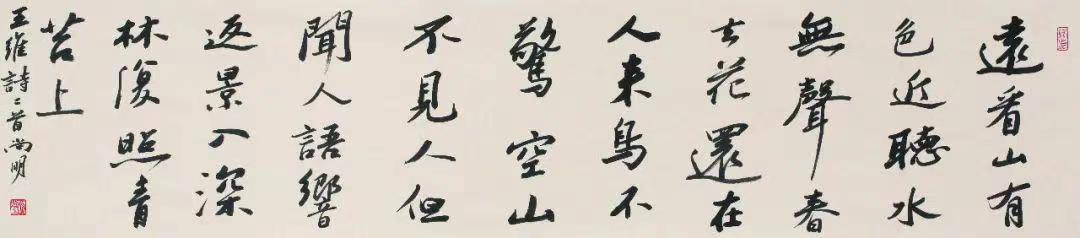 遠看山有
色近聽水
無聲春
去花還在
人来鳥不
驚空山
不見人但
聞人語響
返景入深
林復照青
苔上
王維詩二首尚明